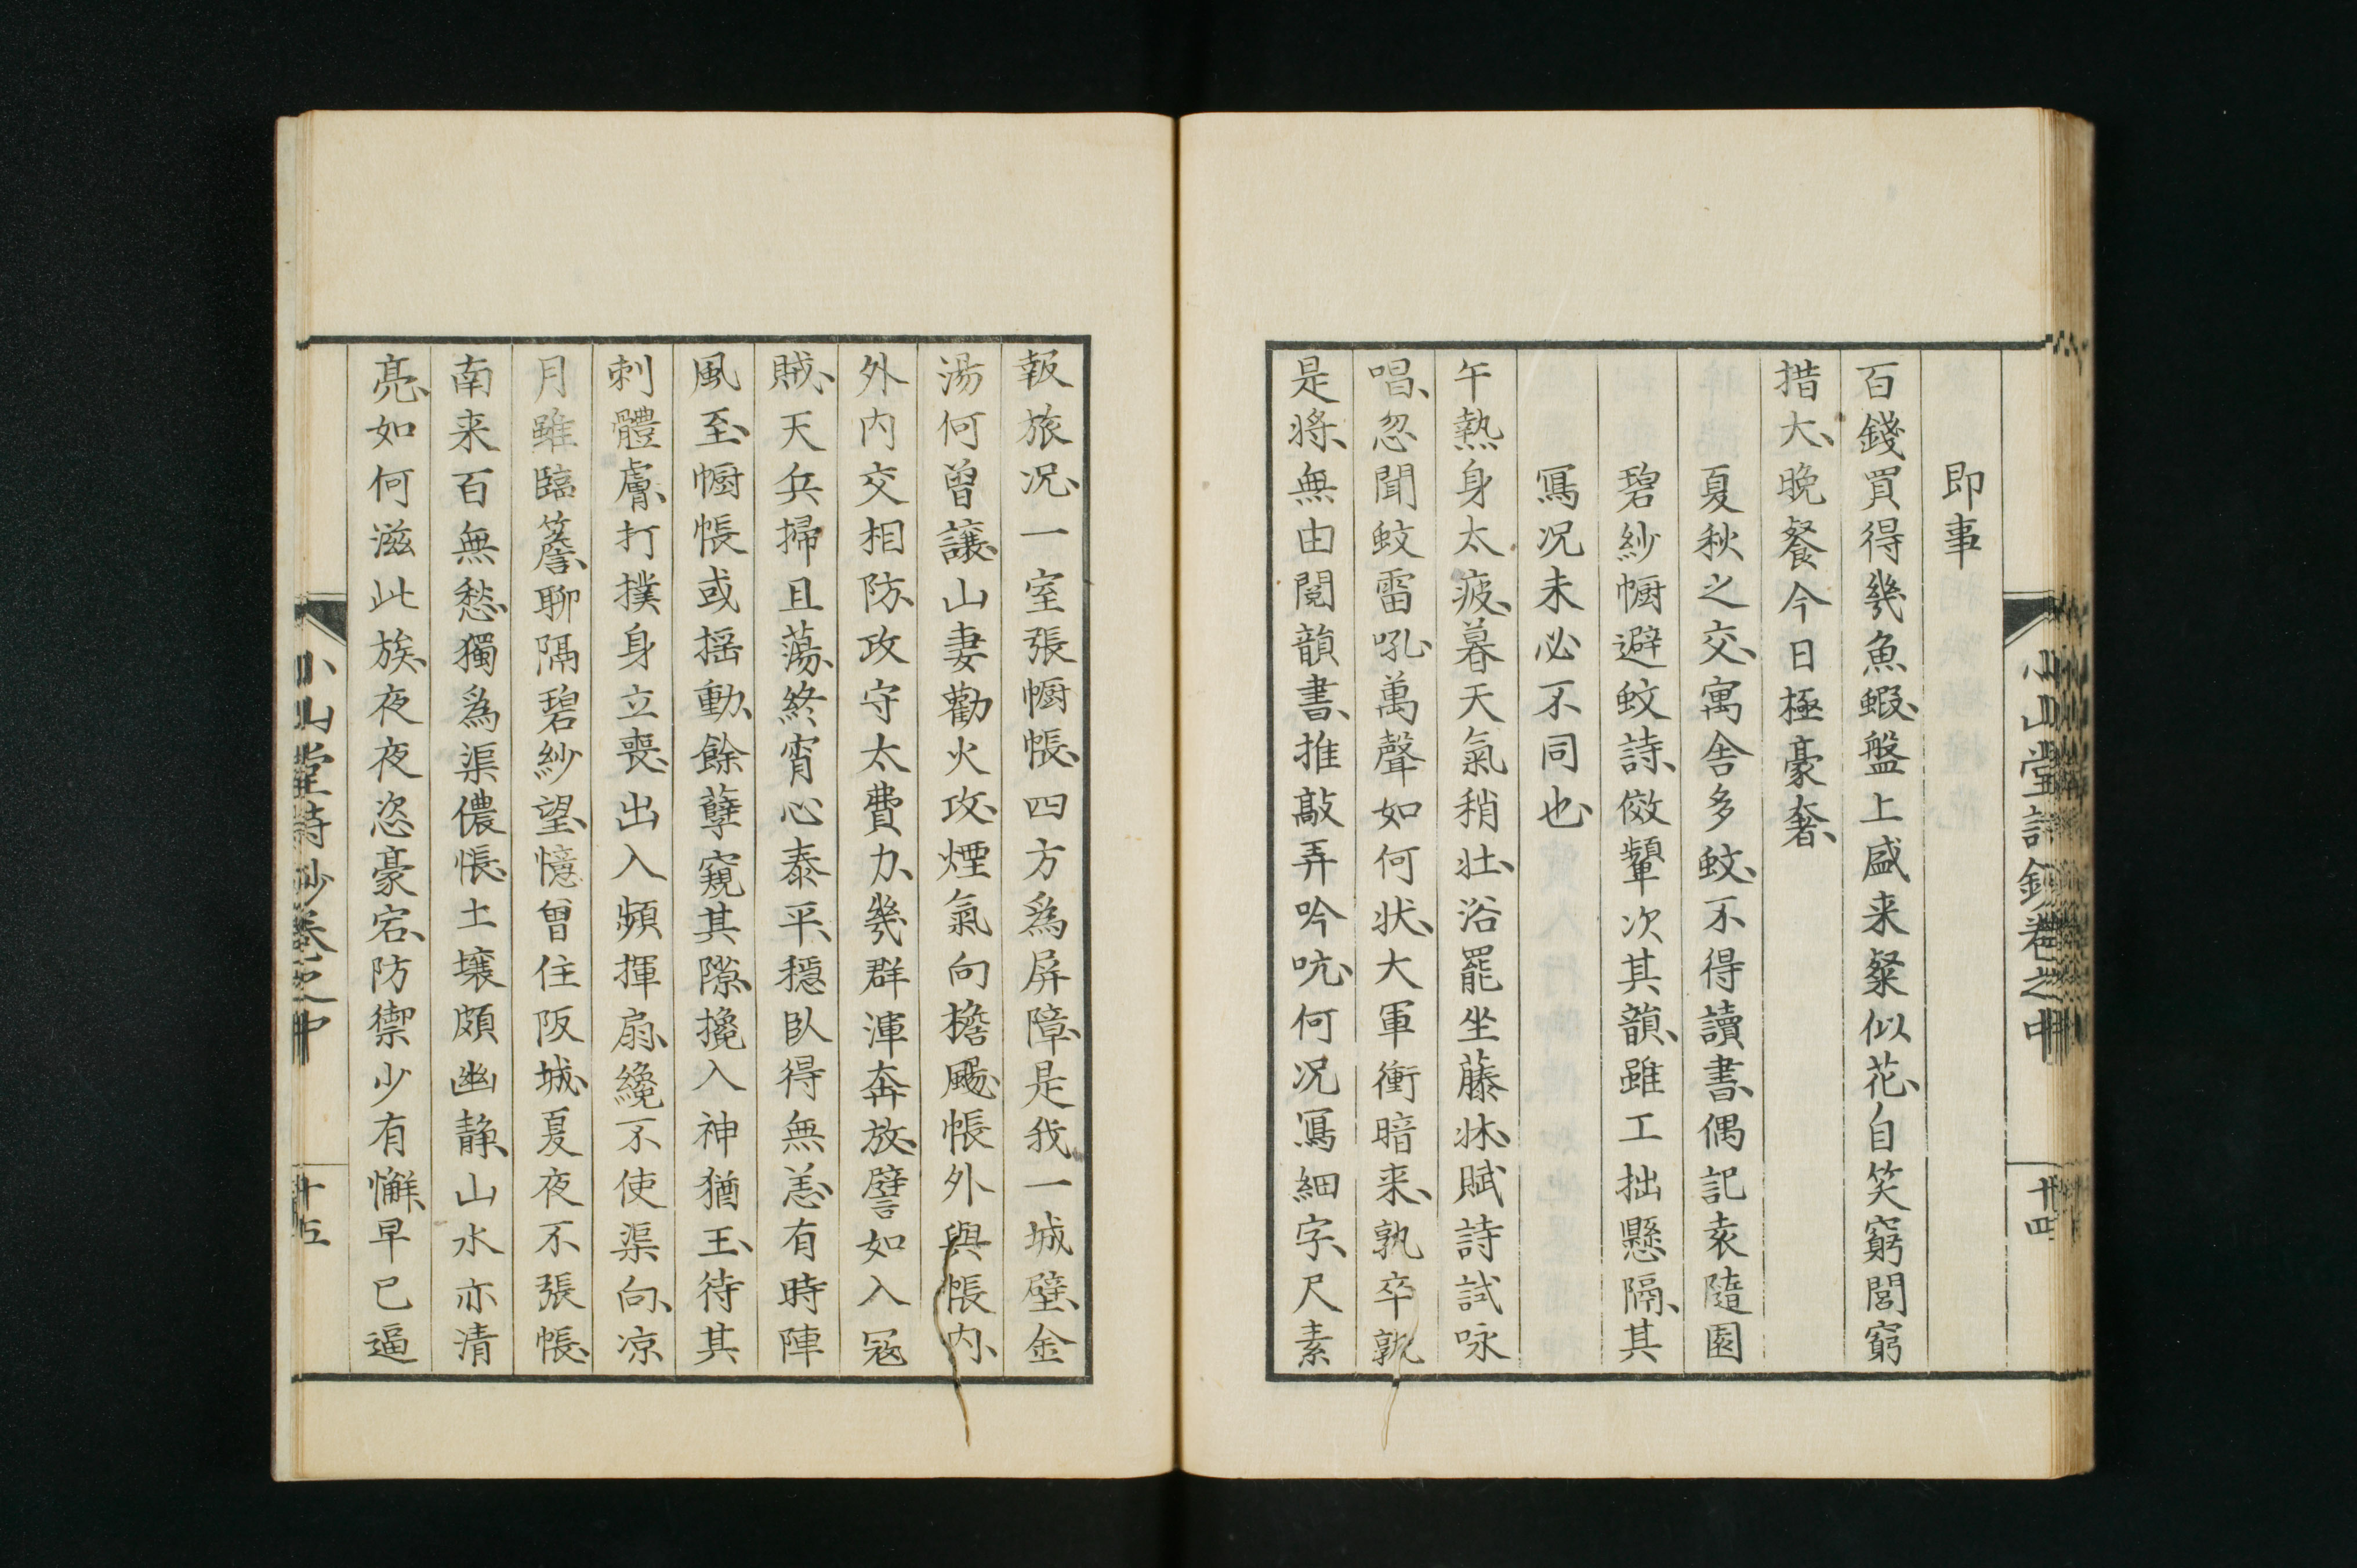 小山堂詩鈔卷之中
十四
即事
百錢買得幾魚蝦、盤上盛来粲似花、自笑窮閻窮
措大、晚餐今日極豪奢、
夏秋之交、寓舎多蚊、不得讀書、偶記袁隨園
碧紗幮避蚊詩、傚顰次其韻、雖工拙懸隔、其
寫况未必不同也、
午熱身太疲、暮天氣稍壮、浴罷坐藤牀、賦詩試咏
唱、忽聞蚊雷吼、萬聲如何状、大軍衝暗来、孰卒孰
是将、無由閲韻書、推敲弄吟吭、何况寫細字、尺素
報旅况、一室張幮帳、四方為屏障、是我一城壁、金
湯何曾讓、山妻勸火攻、煙氣向檐颺、帳外與帳内、
外内交相防、攻守太費力、幾群渾奔放、譬如入冦
賊、天兵掃且蕩、終宵心泰平、穩臥得無恙、有時陣
風至、幮帳或揺動、餘孽窺其隙、攙入神猶王、待其
刺體膚、打撲身立喪、出入頻揮扇、纔不使渠向、凉
月雖臨簷、聊隔碧紗望、憶曾住阪城、夏夜不張帳、
南来百無愁、獨為渠儂悵、土壌頗幽静、山水亦清
亮、如何滋此族、夜夜恣豪宕、防禦少有懈、早已逼
小山堂詩鈔卷之中
十五